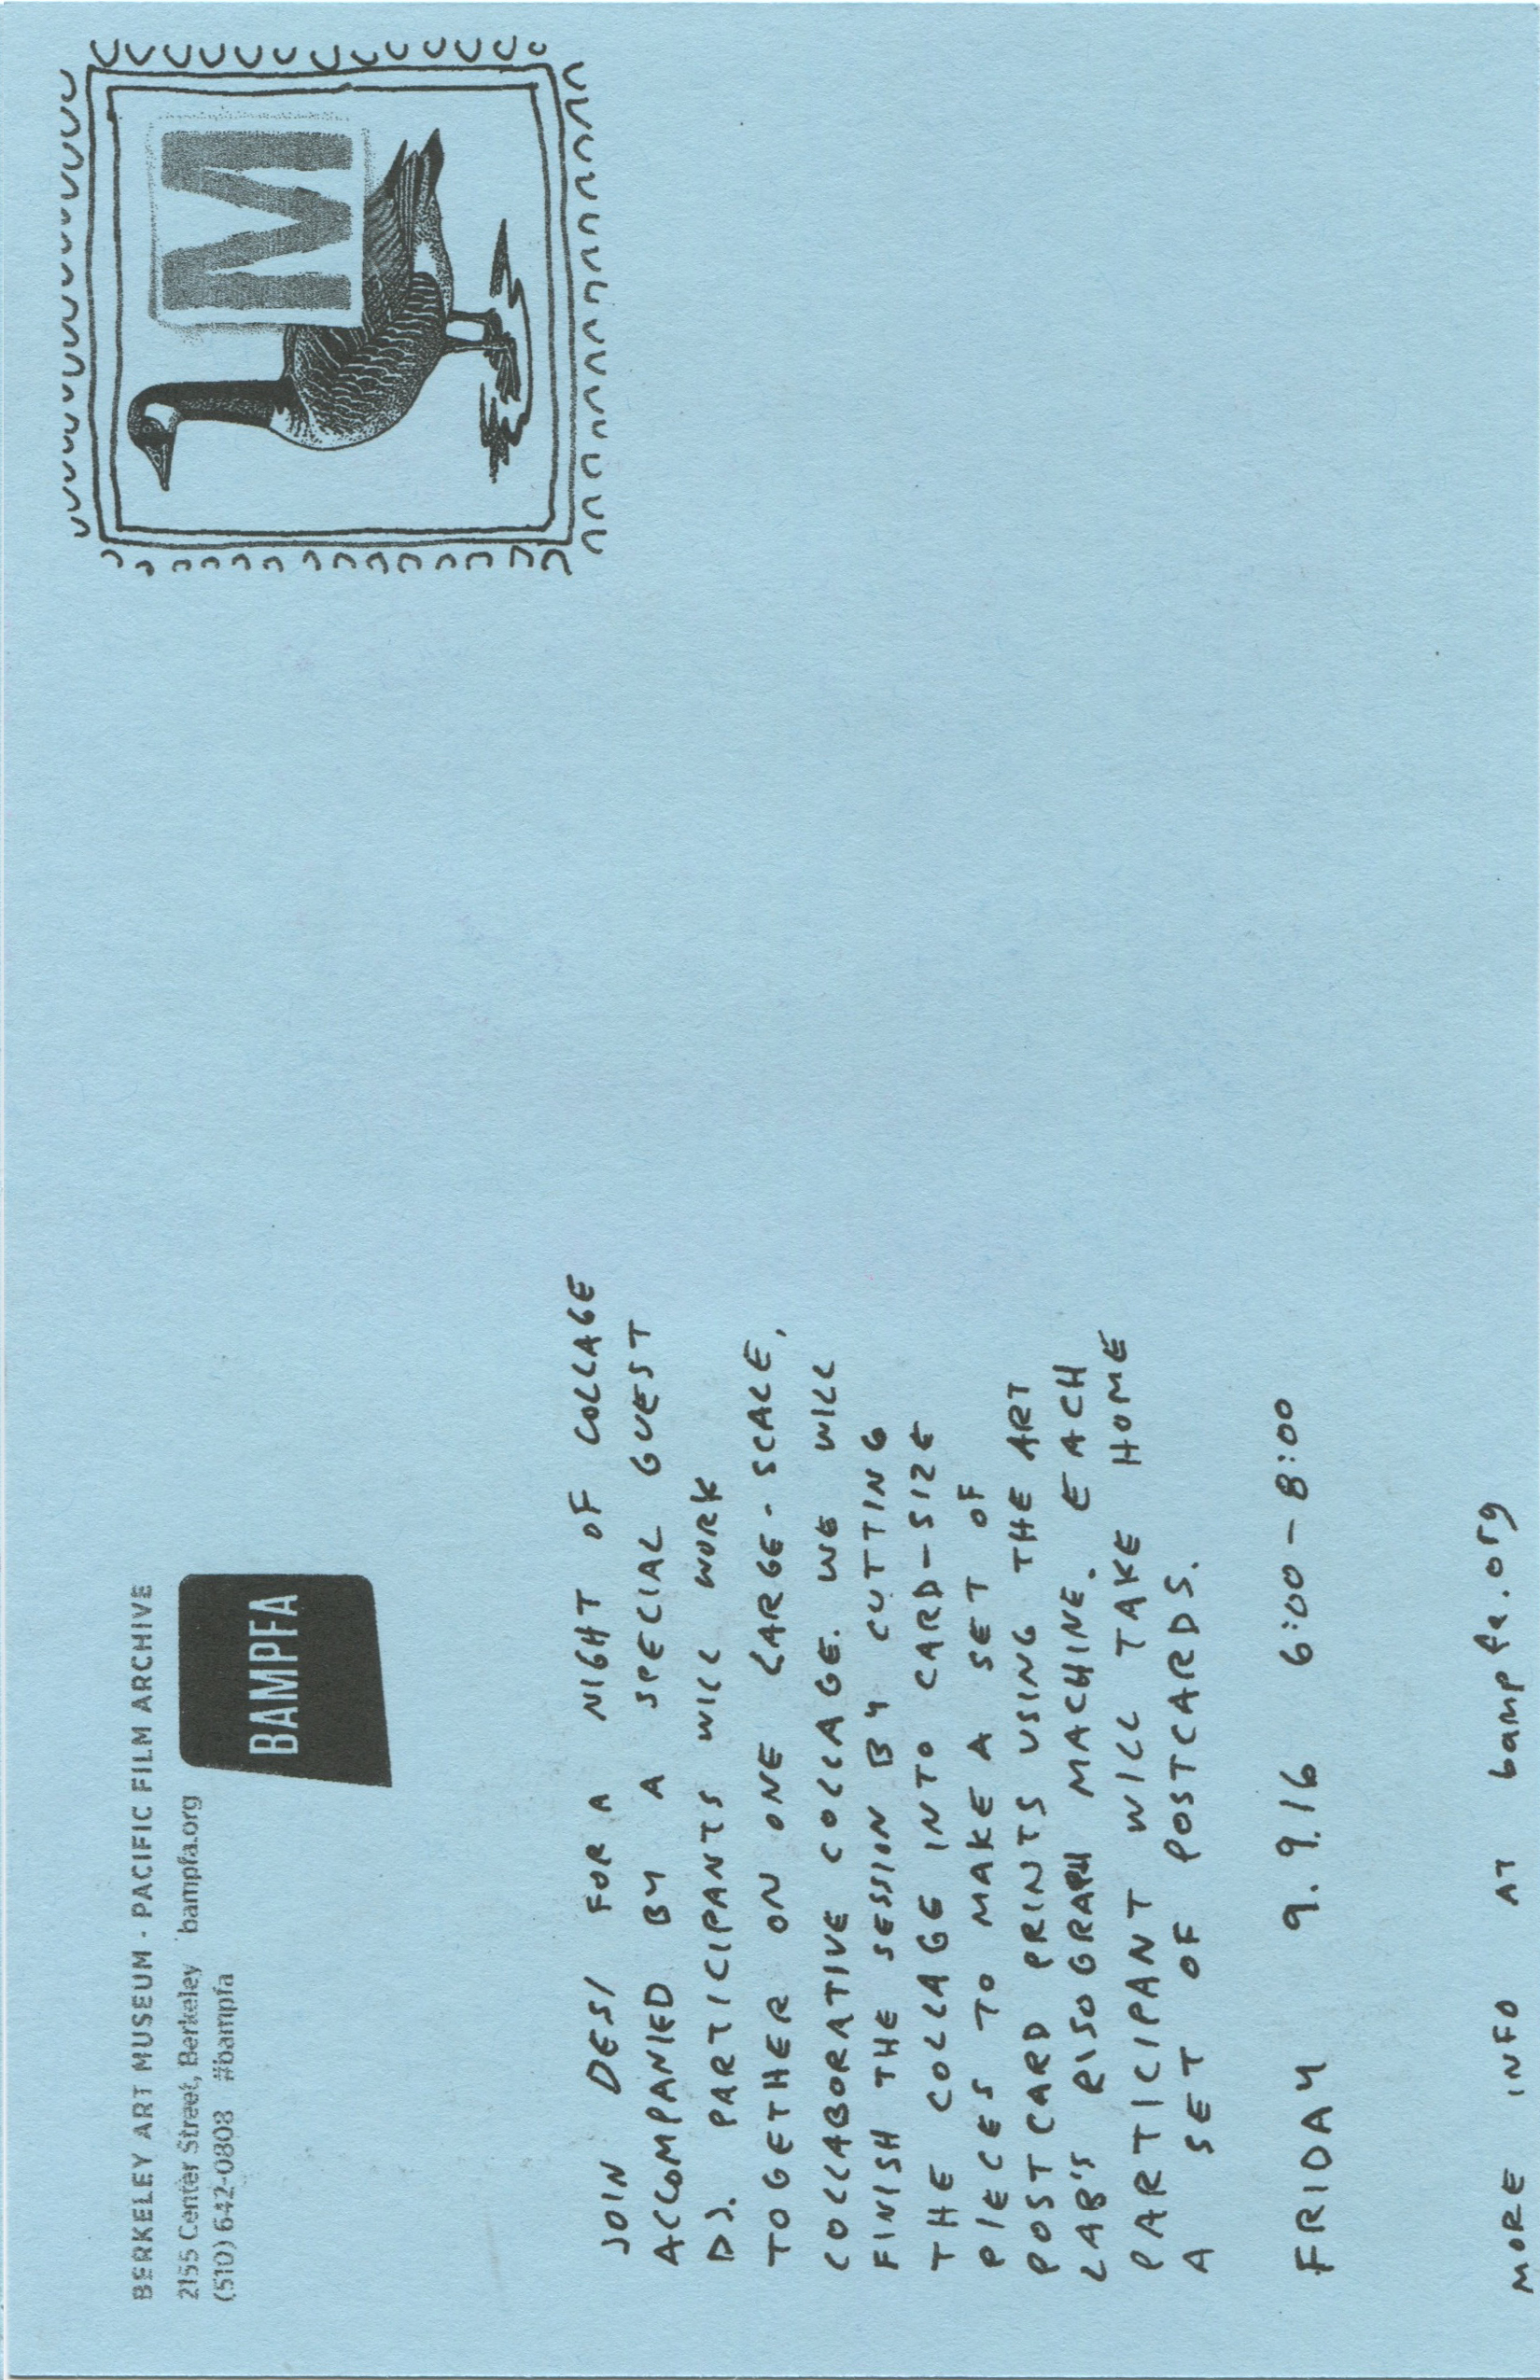 BERKELEY ART MUSEUM · PACIFIC FILM ARCHIVE
2155 Center Street, Berkeley bampfa.org
(510) 642-0808 #bampfa
BAMPFA
M
JOIN DESI FOR A NIGHT OF COLLAGE
ACCOMPANIED BY A SPECIAL GUEST
DJ. PARTICIPANTS WILL WORK
TOGETHER ON ONE LARGE-SCALE,
COLLABORATIVE COLLAGE. WE WILL
FINISH THE SESSION BY CUTTING
THE COLLAGE INTO CARD-SIZE
PIECES TO MAKE A SET OF
POSTCARD PRINTS USING THE ART
LAB'S RISOGRAPH MACHINE. EACH
PARTICIPANT WILL TAKE HOME
A SET OF POSTCARDS.
FRIDAY 9.9.16 6:00-8:00
MORE INFO AT bampfa.org